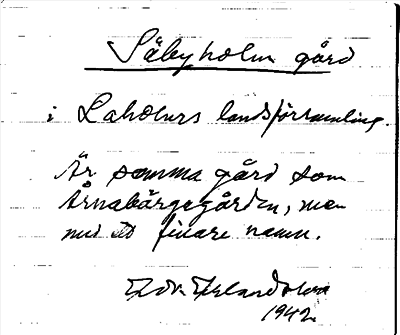 Säbyholm gård
i Laholms landsförsamling.
Är samma gård som
Årnabärgsgården, men
med ett finare namn.
Edv. Erlandsson
1942